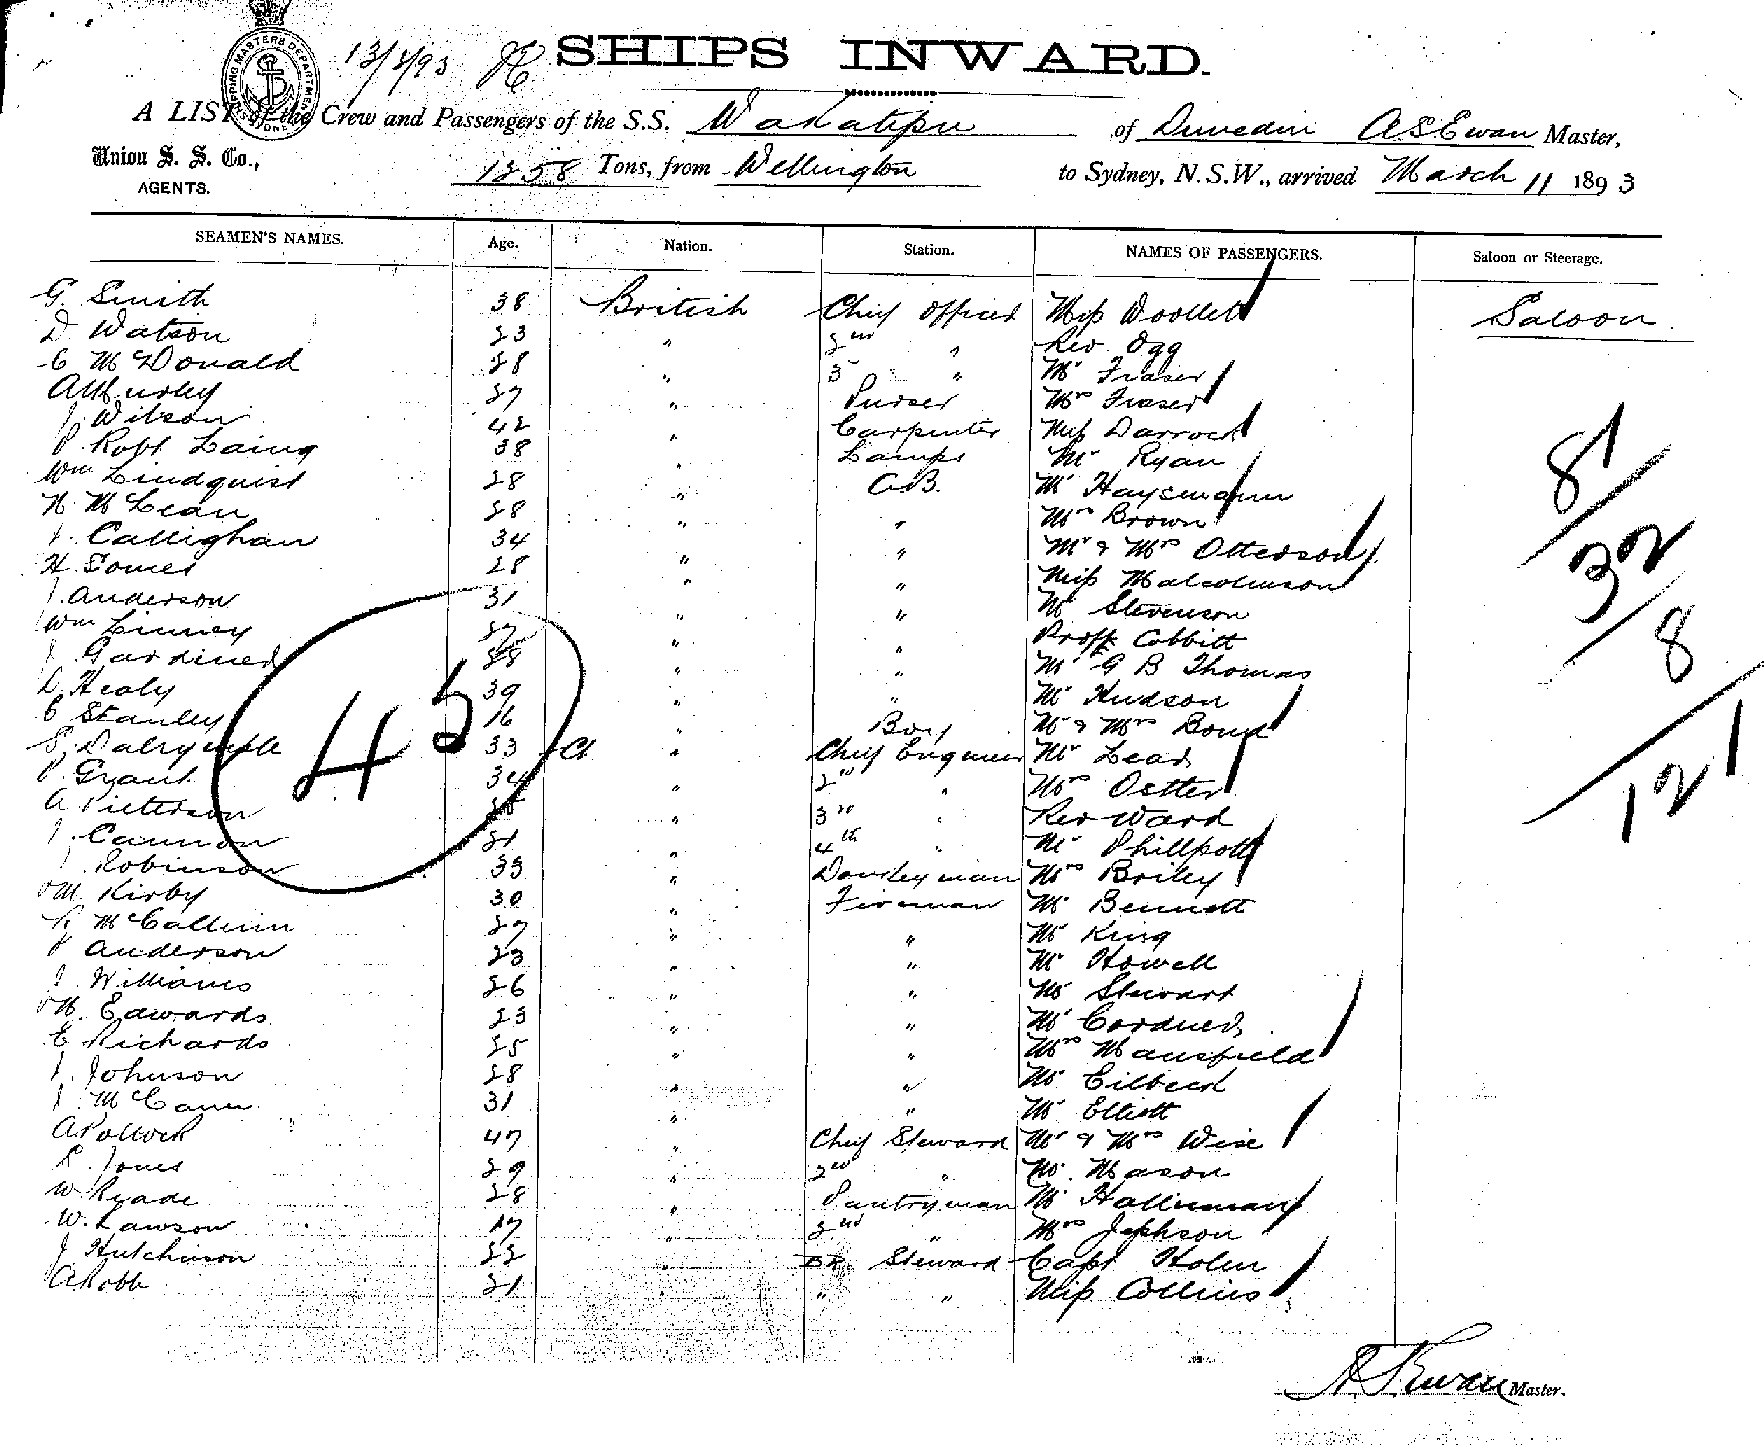 13/3/93 SHIPS INWARD.
A LIST of the Crew and Passengers of the S.S. Wakatipu of Dunedin A S Ewan Master,
Union S. S. Co., AGENTS. 1258 Tons, from Wellington to Sydney, N.S.W., arrived March 11 1893
SEAMEN'S NAMES. Age. Nation. Station. NAMES OF PASSENGERS. Saloon or Steerage.
G. Smith 38 British Chief Officer Miss Woollett Saloon
D Watson 23 " 2nd " Rev. Ogg
C McDonald 28 " 3 " Mr Fraser
27 " Purser Mrs Fraser
J. Wilson 42 " Carpenter Miss Darroch
P. Robt Laing 38 " Lamps Mr Ryan
Wm Lindquist 28 " A.B. Mr Haysmann
N. McLean 28 " " Mrs Brown
J. Callighan 34 " " Mr & Mrs Otterson
H. 28 " " Miss Malcolmson
J. Anderson 31 " " Mr Stevenson
Wm Linney 27 " " Proff. Cobbitt
J Gardiner 28 " " Mr G B Thomas
D. Healy 39 " " Mr Hudson
C Stanley 16 " Boy Mr & Mrs Bond
Dalrymple 33 " Chief Engineer Mr Lead
P. Grant 34 " 2nd " Mrs Oetter
A Pitterson " 3rd " Rev Ward
J. Cannon 21 " 4th " Mr Phillpott
J. Robinson 33 " Donkeyman Mrs Briley
Wm Kirby 30 " Fireman Mr Bennett
R McCallum 27 " " Mr King
P Anderson 23 " " Mr Howell
J. Williams 26 " " Mr Stewart
Wm. Edwards 23 " " Mr Cordner
E Richards 25 " " Mrs Mansfield
J. Johnson 28 " " Mr Eilbeck
J. McCann 31 " " Mr Elliott
A Pollock 47 " Chief Steward Mr & Mrs Wise
R. Jones 29 " 2nd " Mr. Mason
W. Reade 28 " Pantryman Mr Halleman
W. Lawson 17 " 2nd " Mrs Jephson
J Hutchinson 22 " Steward Capt Holm
A Robb 21 " " Miss Collins
45
81
32
8
121
A S Ewan Master.